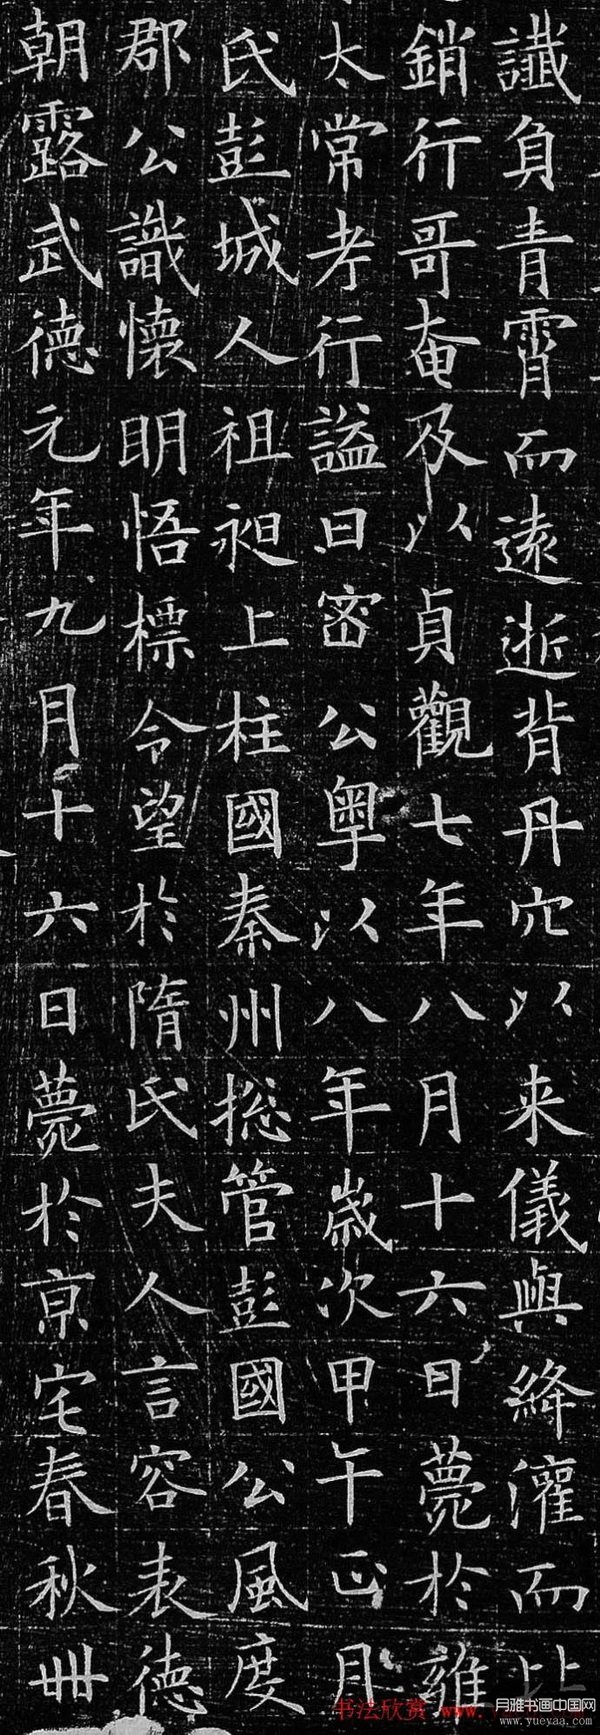 讖負青霄而遠逝背丹穴以来儀與絳灌而比
銷行哥奄及以貞觀七年八月十六日薨於雍
太常考行謚曰密公粵以八年歲次甲午正月
氏彭城人祖昶上柱國秦州揔管彭國公風度
郡公識懷明悟標令望於隋氏夫人言容表德
朝露武德元年九月十六日薨於京宅春秋卌
书法欣赏
月雅书画中国网
www.yueyaa.com